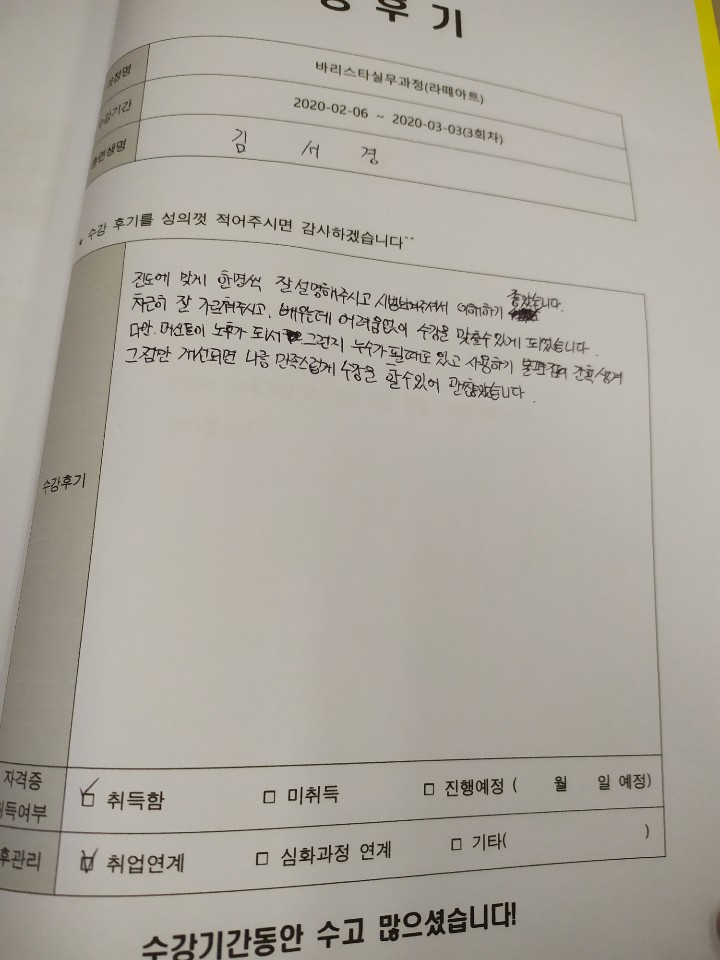 후기
과정명 바리스타실무과정(라떼아트)
수강기간 2020-02-06 ~ 2020-03-03(3회차)
훈련생명 김 서 경
* 수강 후기를 성의껏 적어주시면 감사하겠습니다^^
수강후기
진도에 맞게 한명씩 잘설명해주시고 시범보여주셔서 이해하기 좋았습니다.
차근히 잘 가르쳐주시고, 배우는데 어려움없이 수강을 맞출수있게 되었습니다.
다만, 머신들이 노후가 되서 그런지 누수가 될때도 있고 사용하기 불편점이 간혹 생겨
그점만 개선되면 나름 만족스럽게 수강을 할수있어 괜찮았습니다.
자격증 취득여부 취득함 미취득 진행예정 ( 월 일 예정)
후관리 취업연계 심화과정 연계 기타( )
수강기간동안 수고 많으셨습니다!